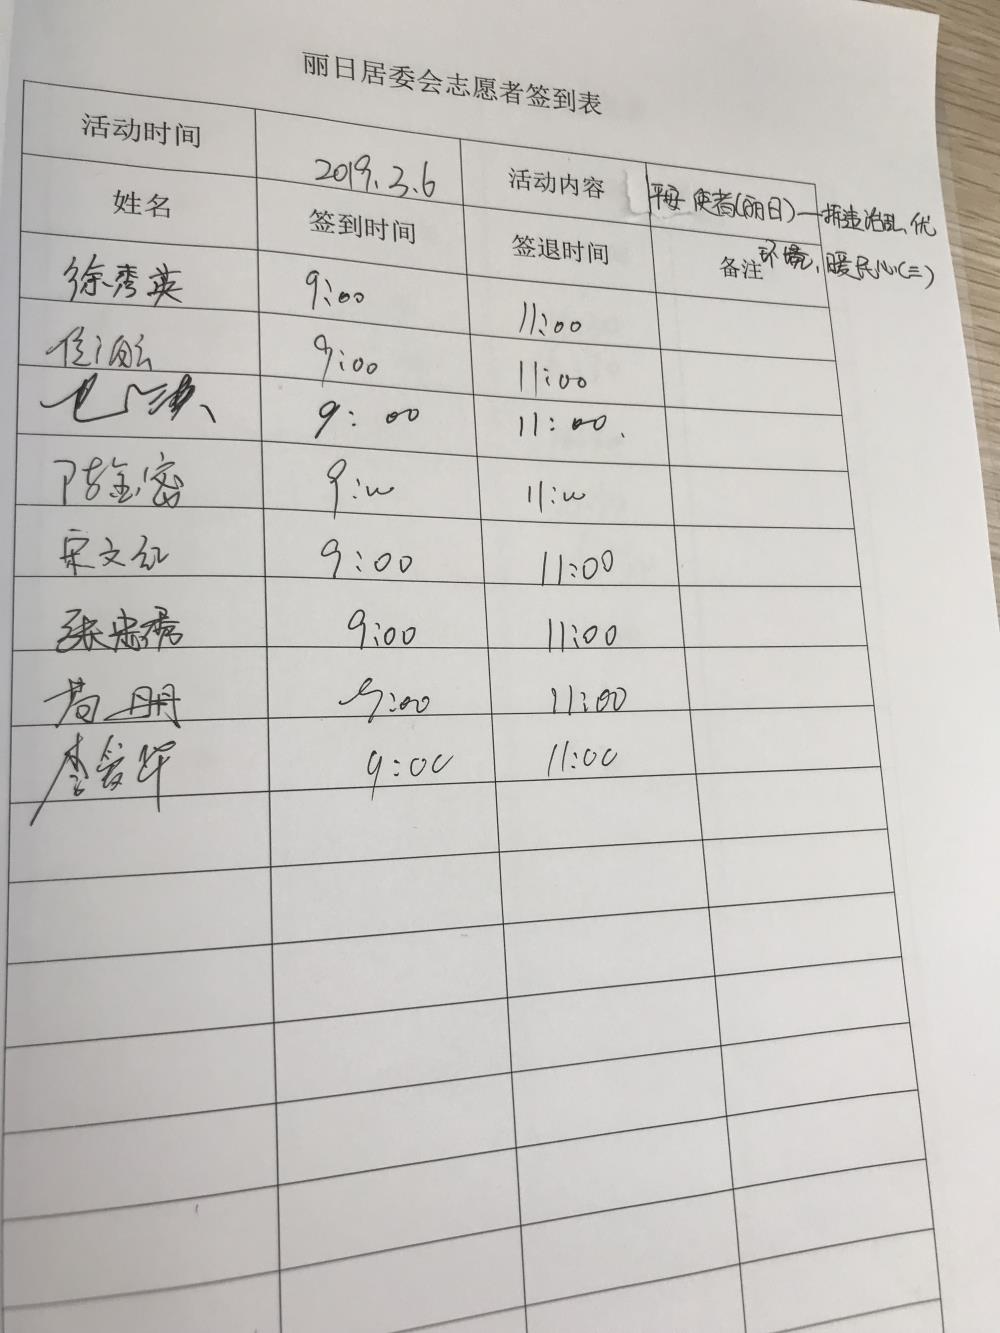 丽日居委会志愿者签到表
活动时间 2019.3.6 活动内容 平安使者(丽日)—拆违治乱、优
环境、暖民心(三)
姓名 签到时间 签退时间 备注
徐秀英 9:00 11:00
9:00 11:00
9:00 11:00.
陆金密 9:00 11:00
宋文红 9:00 11:00
张忠秀 9:00 11:00
黄丹丹 9:00 11:00
李爱华 9:00 11:00